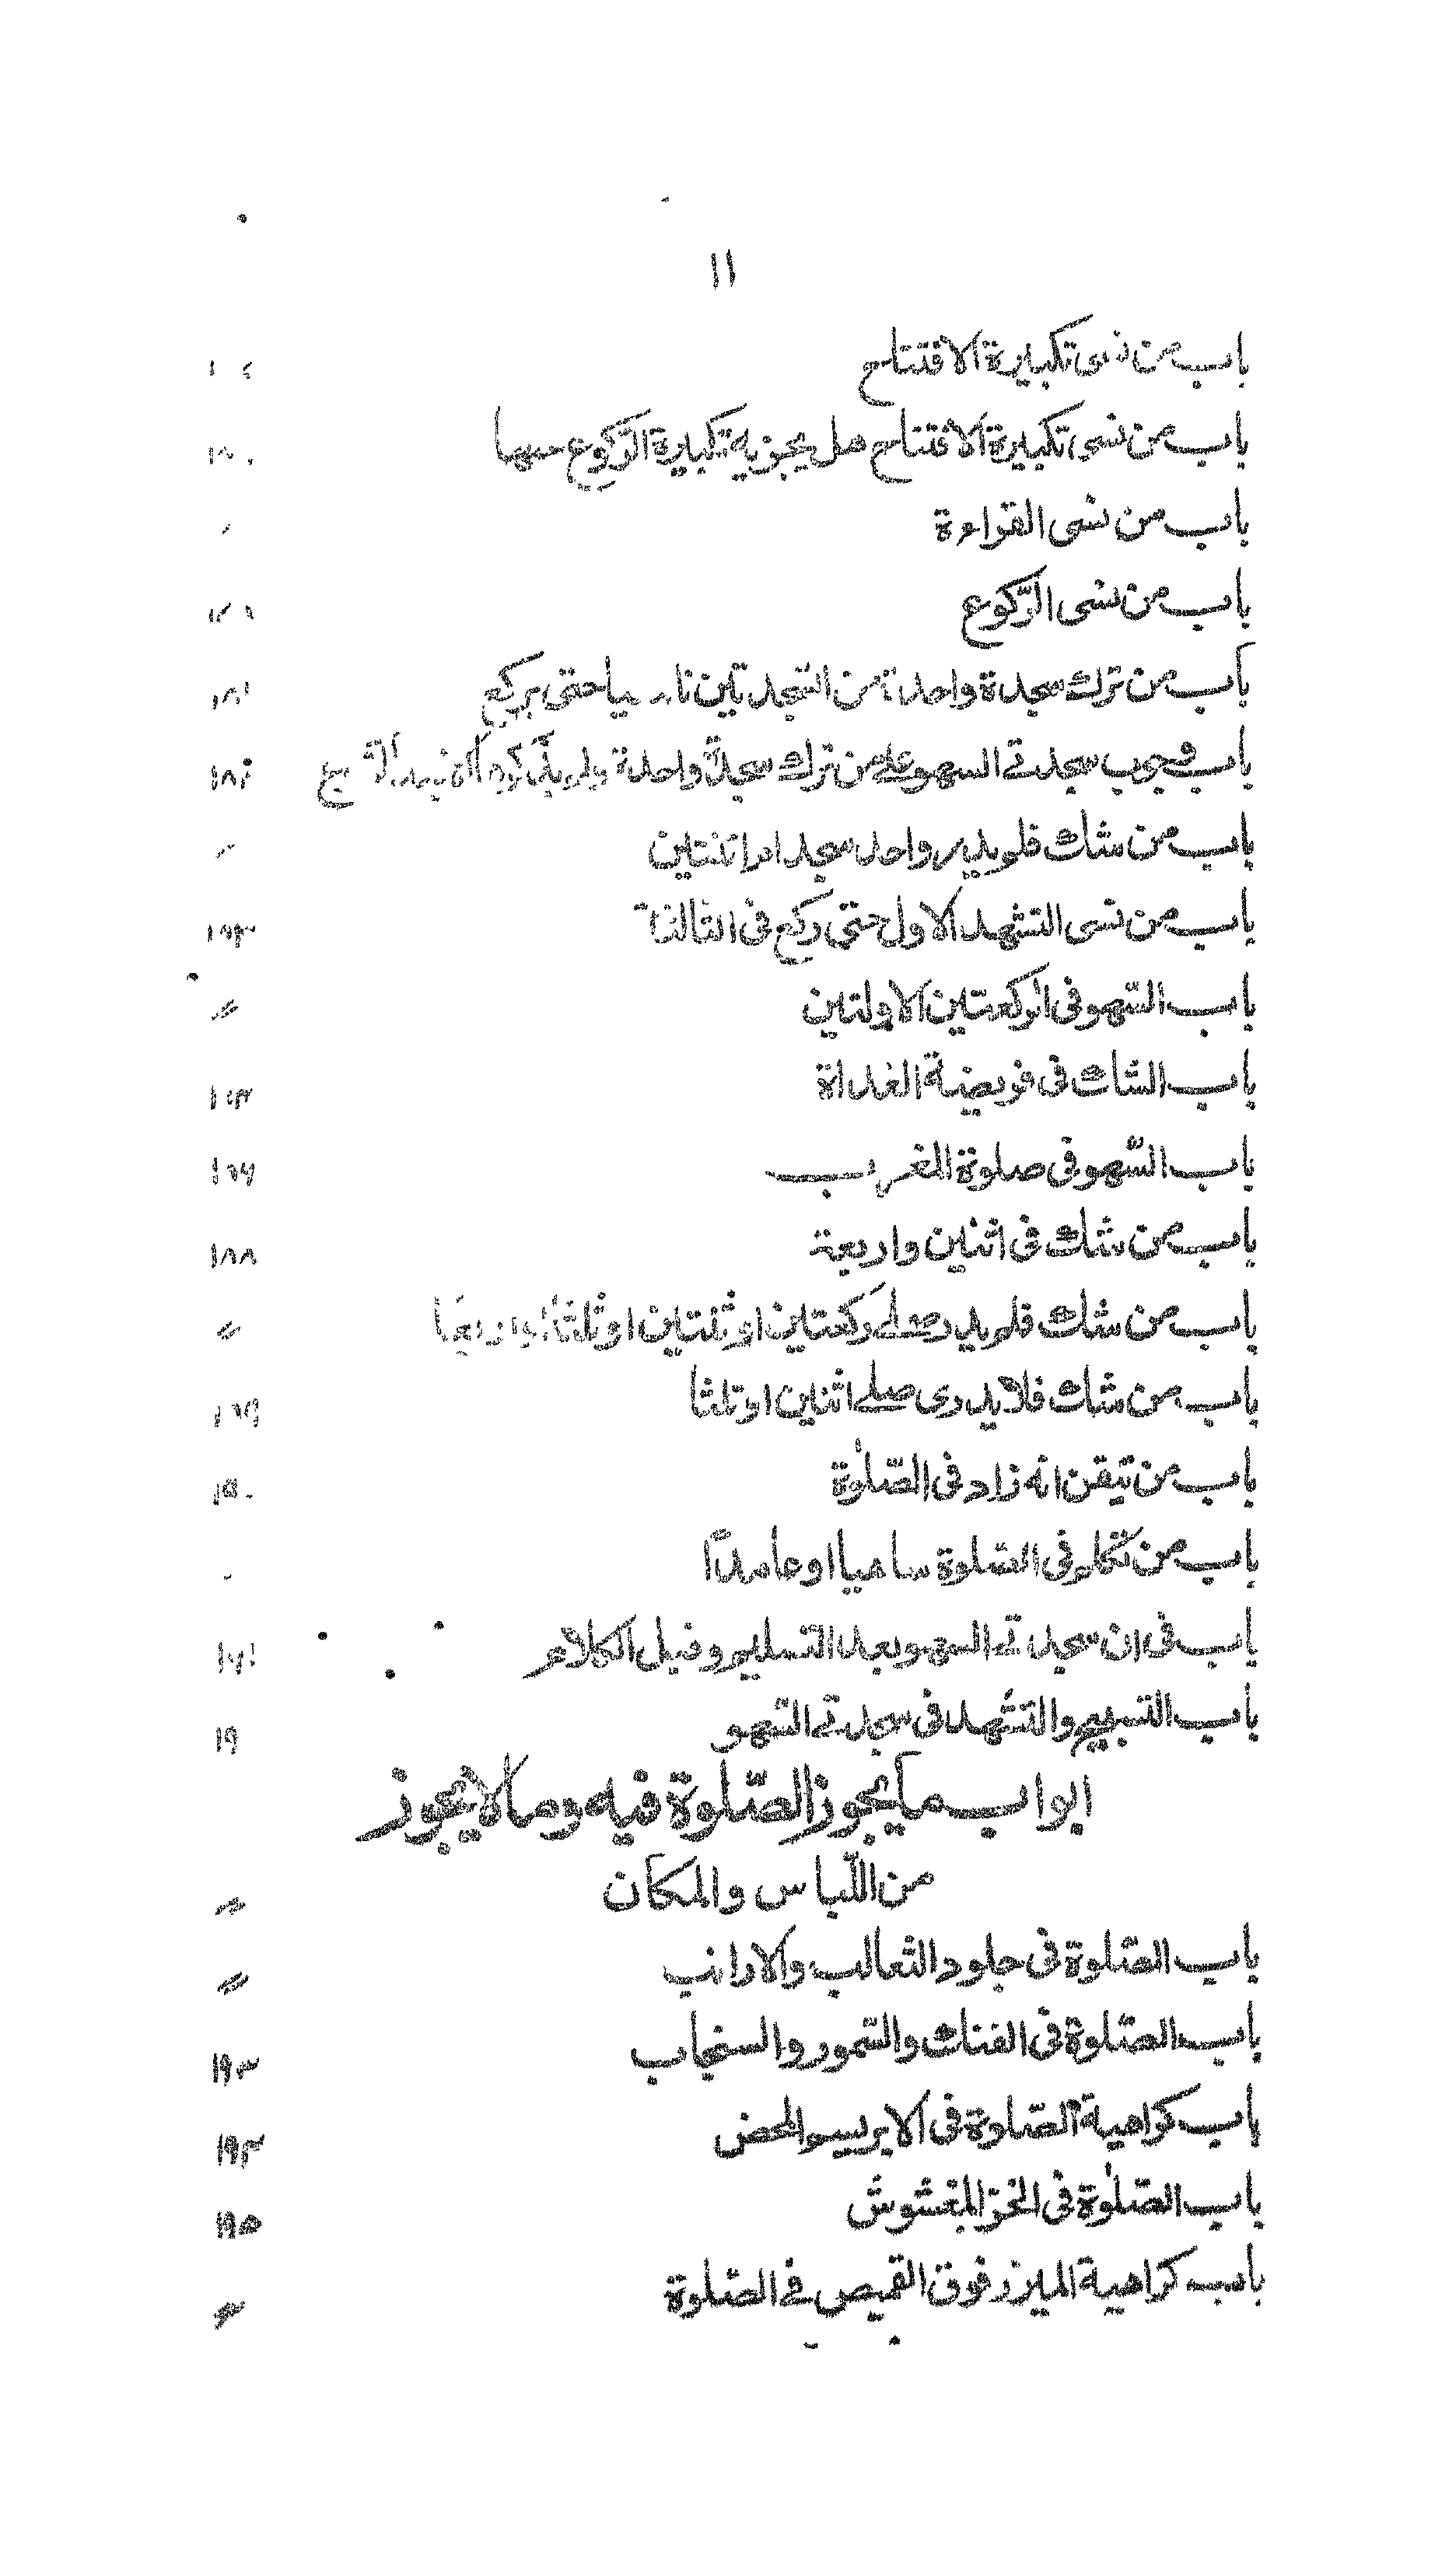 ١١
باب من نسى تكبيرة الافتتاح
باب من نسى تكبيرة الافتتاح هل يجزيه تكبيرة الرّكوع عنها
باب من نسى القراءة
باب من نسى الرّكوع
باب من ترك سجدة واحدة من السّجدتين ناسيا حتى يركع ١٨١
باب وجوب سجدتے السهو علے من ترك سجدة واحدة ولم يذكرها الا بعد الركوع
باب من شك فلم يدر واحد سجد ام اثنتين
باب من نسى التشهد الاول حتى ركع فى الثالثة
باب السّهو فى الركعتين الاولتين
باب الشك فى فريضة الغداة
باب السّهو فى صلوة المغرب
باب من شك فى اثنين واربعة ١٨٨
باب من شك فلم يدر صلے ركعتين او ثنتين او ثلثا او اربعا
باب من شك فلا يدرى صلے اثنين او ثلثا
باب من تيقن انه زاد فى الصّلوٰة
باب من تكلم فى الصّلوة ساهيا او عامدًا
باب فى ان سجدتے السهو بعد التسليم وقبل الكلام
باب التسبيح والتشهد فى سجدتے السّهو
ابواب ما يجوز الصّلوة فيه وما لا يجوز
من اللّباس والمكان
باب الصّلوة فى جلود الثعالب والارانب
باب الصّلوة فى الفنك والسّمور والسنجاب ١٩٣
باب كراهية الصّلوة فى الابريسم المحض
باب الصّلوٰة فى الخزّ المغشوش ١٩٥
باب كراهية الميزر فوق القميص فے الصّلوة